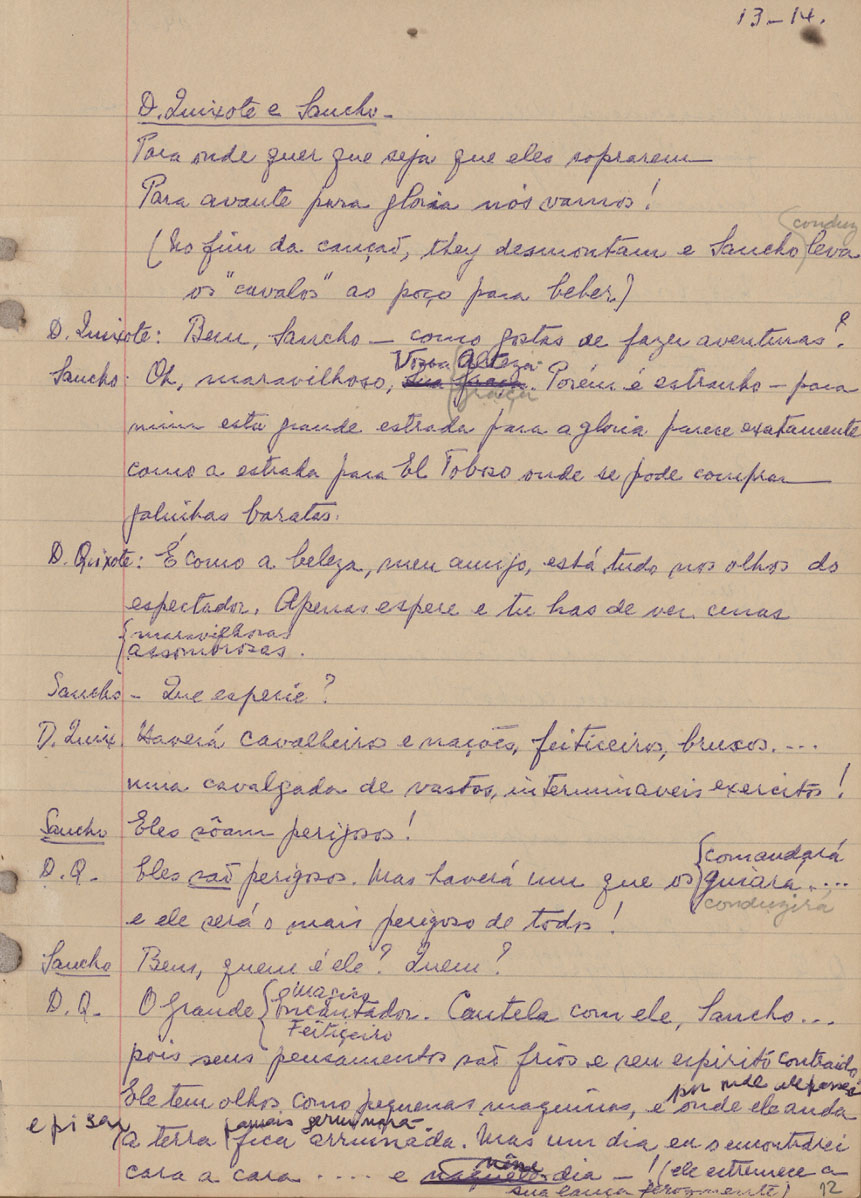 13-14.
D. Quixote e Sancho -
Para onde quer que seja que eles soprarem
Para avante para gloria nós vamos!
{conduz
(No fim da canção, they desmontam e Sancho leva
os "cavalos" ao poço para beber.)
D. Quixote: Bem, Sancho - como gostas de fazer aventuras?
Vossa Alteza.
Sancho. Oh, maravilhoso, sua graça. Porém é estranho - para
graça
mim esta grande estrada para a gloria parece exatamente
como a estrada para El Toboso onde se pode comprar
galinhas baratas.
D. Quixote: É como a beleza, meu amigo, está tudo nos olhos do
espectador. Apenas espere e tu has de ver cenas
{maravilhosas
assombrosas.
Sancho - Que especie?
D. Quix. Haverá cavalheiros e nações, feiticeiros, bruxos....
uma cavalgada de vastos, interminaveis exercitos!
Sancho Eles sôam perigosos!
{comandará
D.Q. Eles são perigosos. Mas haverá um que os guiará....
conduzirá
e ele será o mais perigoso de todos!
Sancho Bem, quem é ele? Quem?
magico
D.Q. O Grande {Encantador. Cautela com ele, Sancho...
Feiticeiro
pois seus pensamentos são frios e seu espirito contraido
por onde ele passe
Ele tem olhos como pequenas maquinas, e onde ele anda
e pisar jamais germinará.
a terra fica arruinada. Mas um dia eu o encontrarei
nêsse
cara a cara .... e naquele dia - ! (ele estremece a
sua lança ferozmente)
12